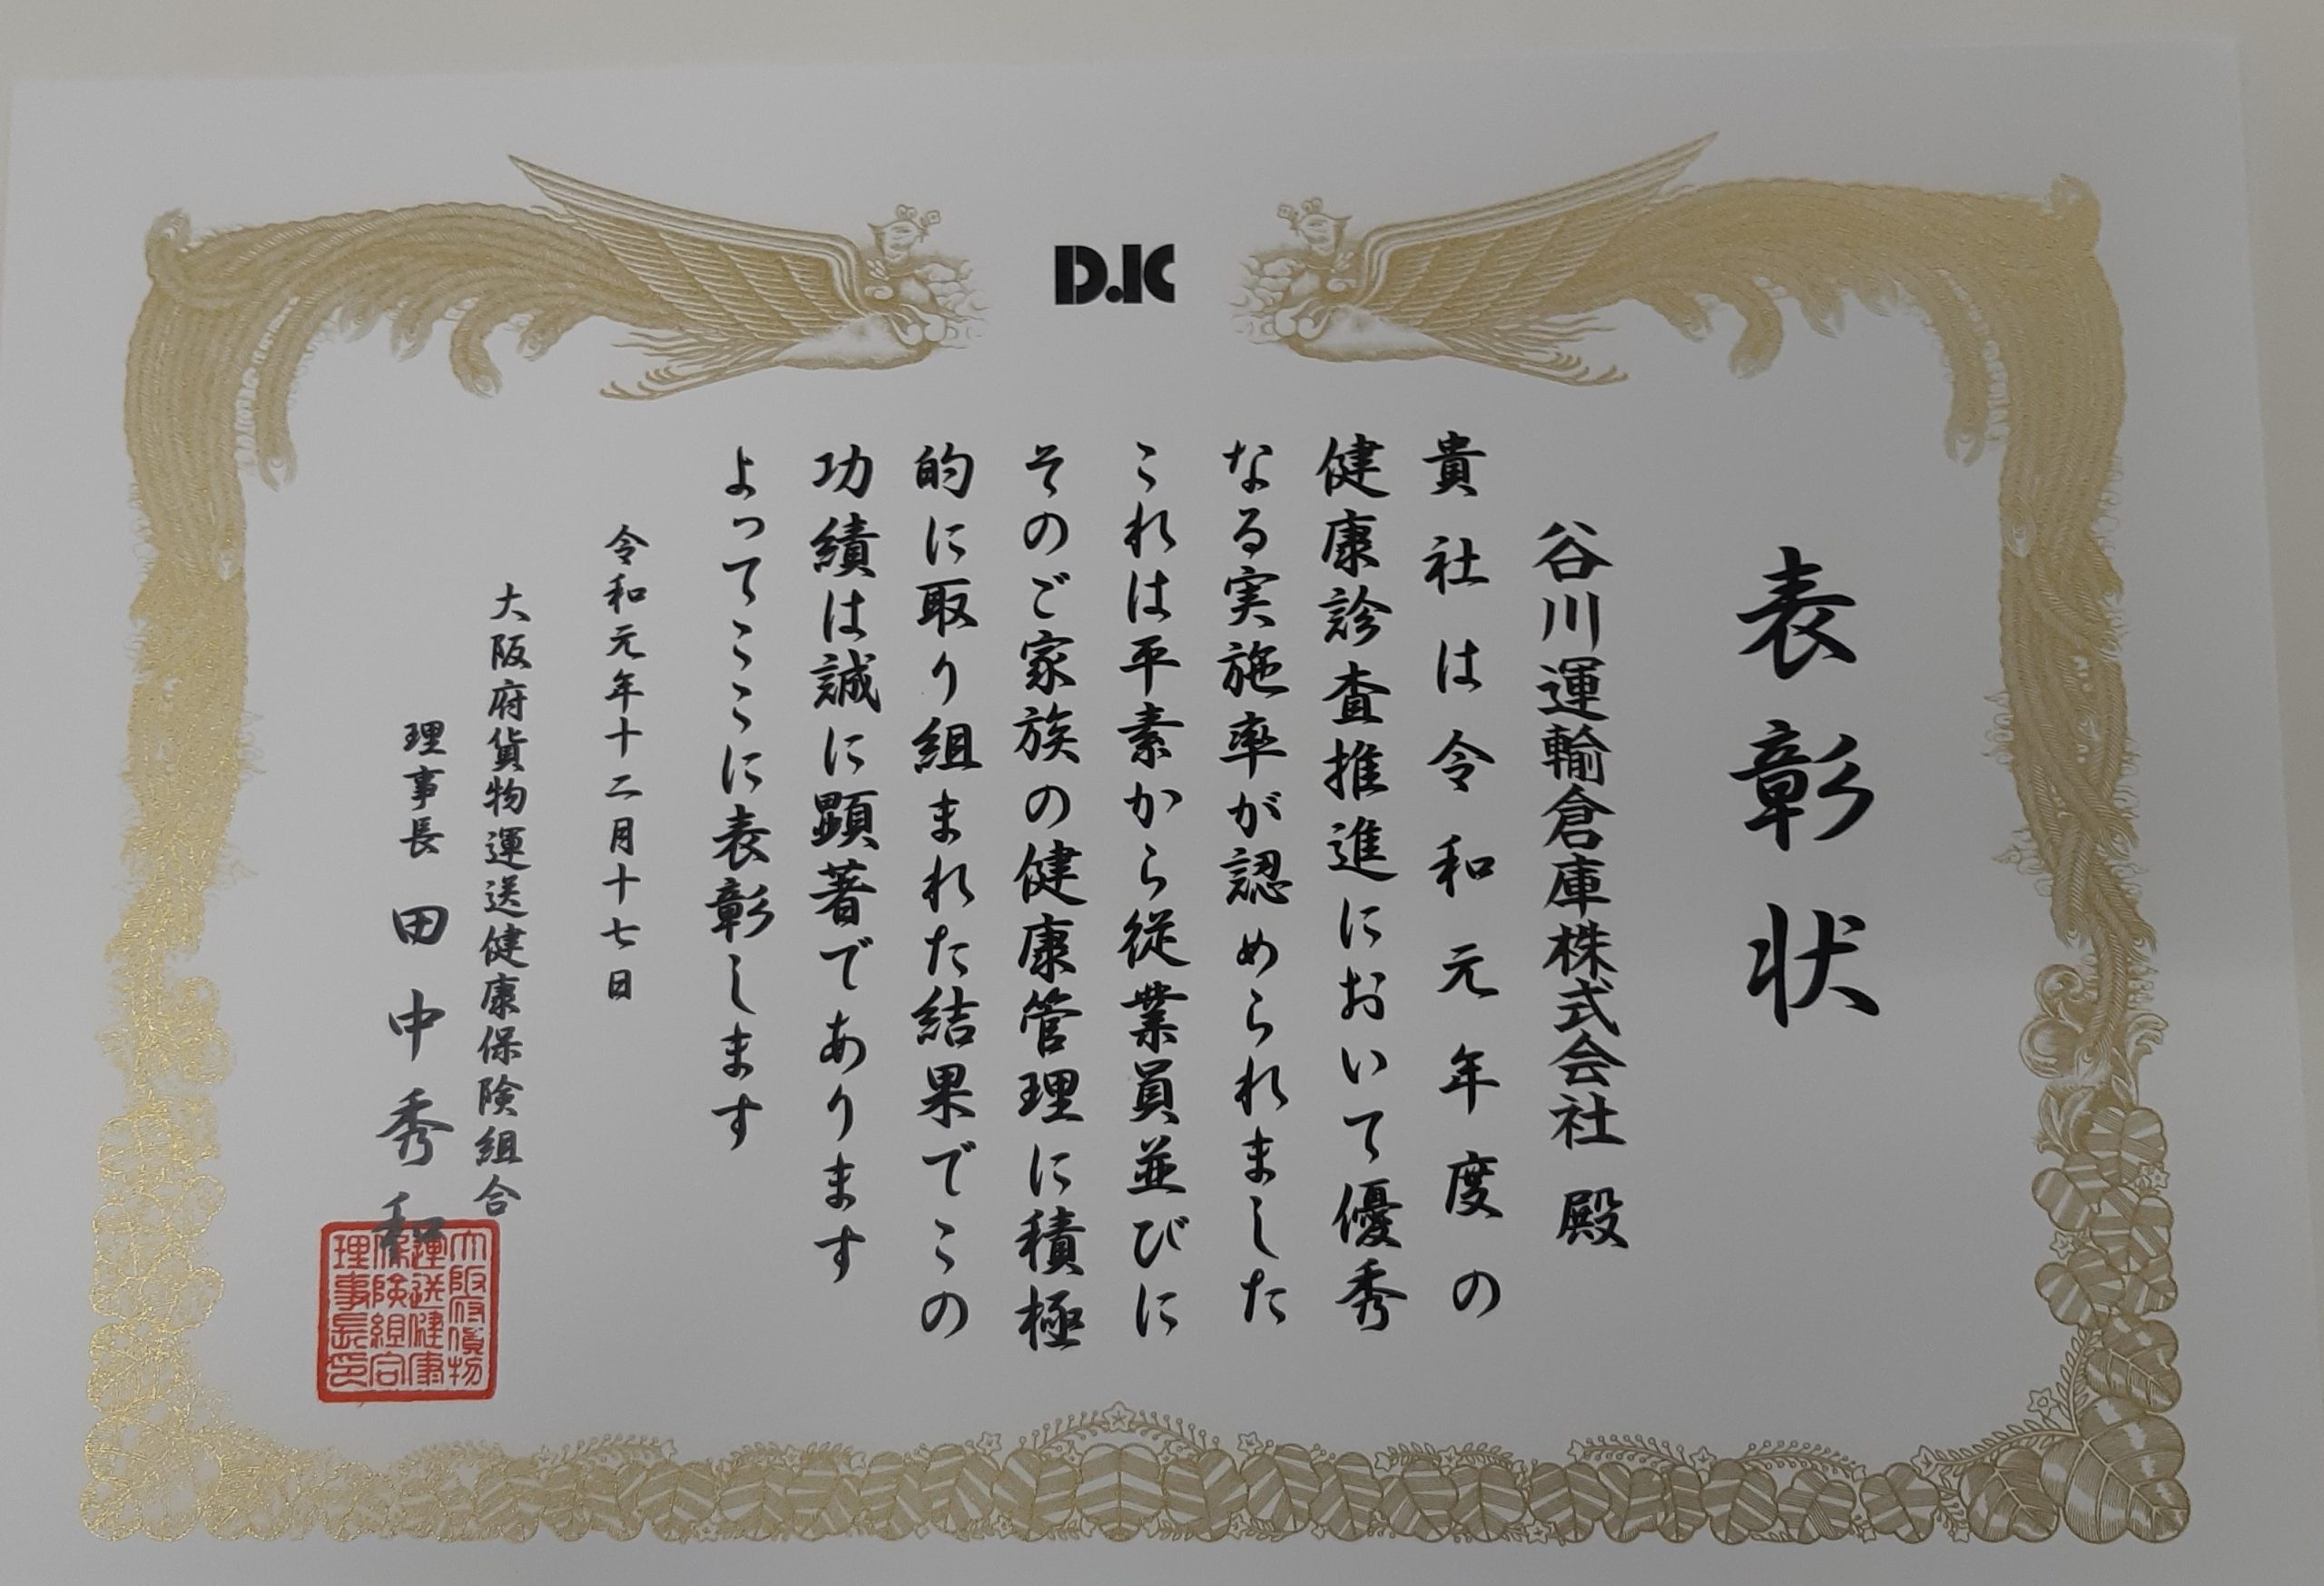 D.IC
表彰状
谷川運輸倉庫株式会社 殿
貴社は令和元年度の
健康診査推進において優秀
なる実施率が認められました
これは平素から従業員並びに
そのご家族の健康管理に積極
的に取り組まれた結果でこの
功績は誠に顕著であります
よってここに表彰します
令和元年十二月十七日
大阪府貨物運送健康保険組合
理事長 田中秀和
大阪府貨物
運送健康
保険組合
理事長印